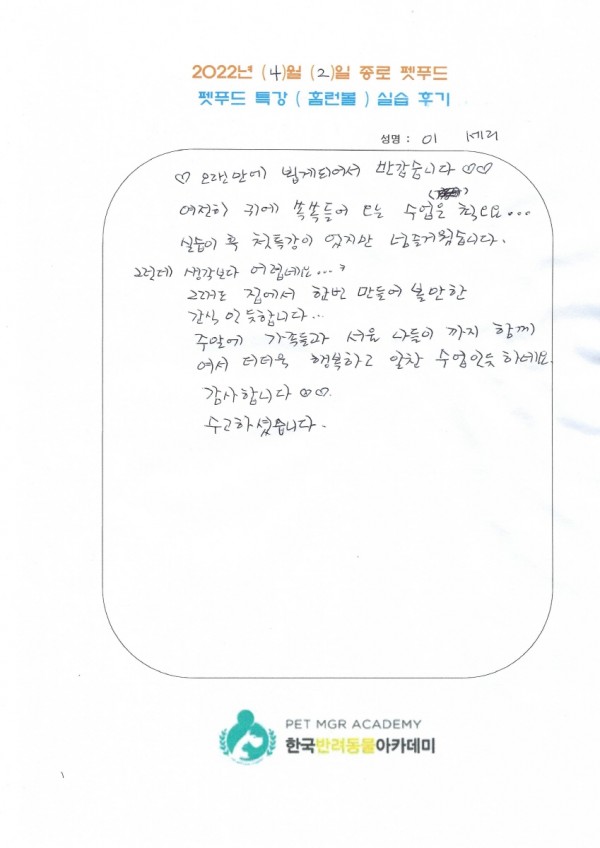 2022년 (4)월 (2)일 종로 펫푸드
펫푸드 특강 ( 홈런볼 ) 실습 후기
성명 : 이 세리
♡ 오랜만에 뵙게되어서 반갑습니다 ♡♡
여전히 귀에 쏙쏙들어 오는 수업은
실습이 꼭 첫특강이 있지만 넘즐거웠습니다.
그런데 생각보다 어렵네요...ㅋ
그래도 집에서 한번 만들어 볼만한
간식 인듯합니다...
주말에 가족들과 서울 나들이 까지 함께
여서 더더욱 행복하고 알찬 수업인듯 하네요.
감사합니다 ♡♡.
수고하셨습니다.
PET MGR ACADEMY
한국반려동물아카데미